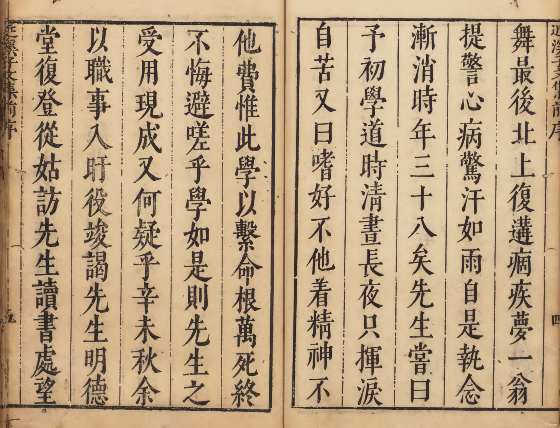 舞最後北上復遘痼疾夢一翁
提警心病驚汗如雨自是執念
漸消時年三十八矣先生嘗曰
予初學道時清晝長夜只揮淚
自苦又曰嗜好不他着精神不
他費惟此學以繫命根萬死終
不悔避嗟乎學如是則先生之
受用現成又何疑乎辛未秋余
以職事入盱役竣謁先生明德
堂復登從姑訪先生讀書處望